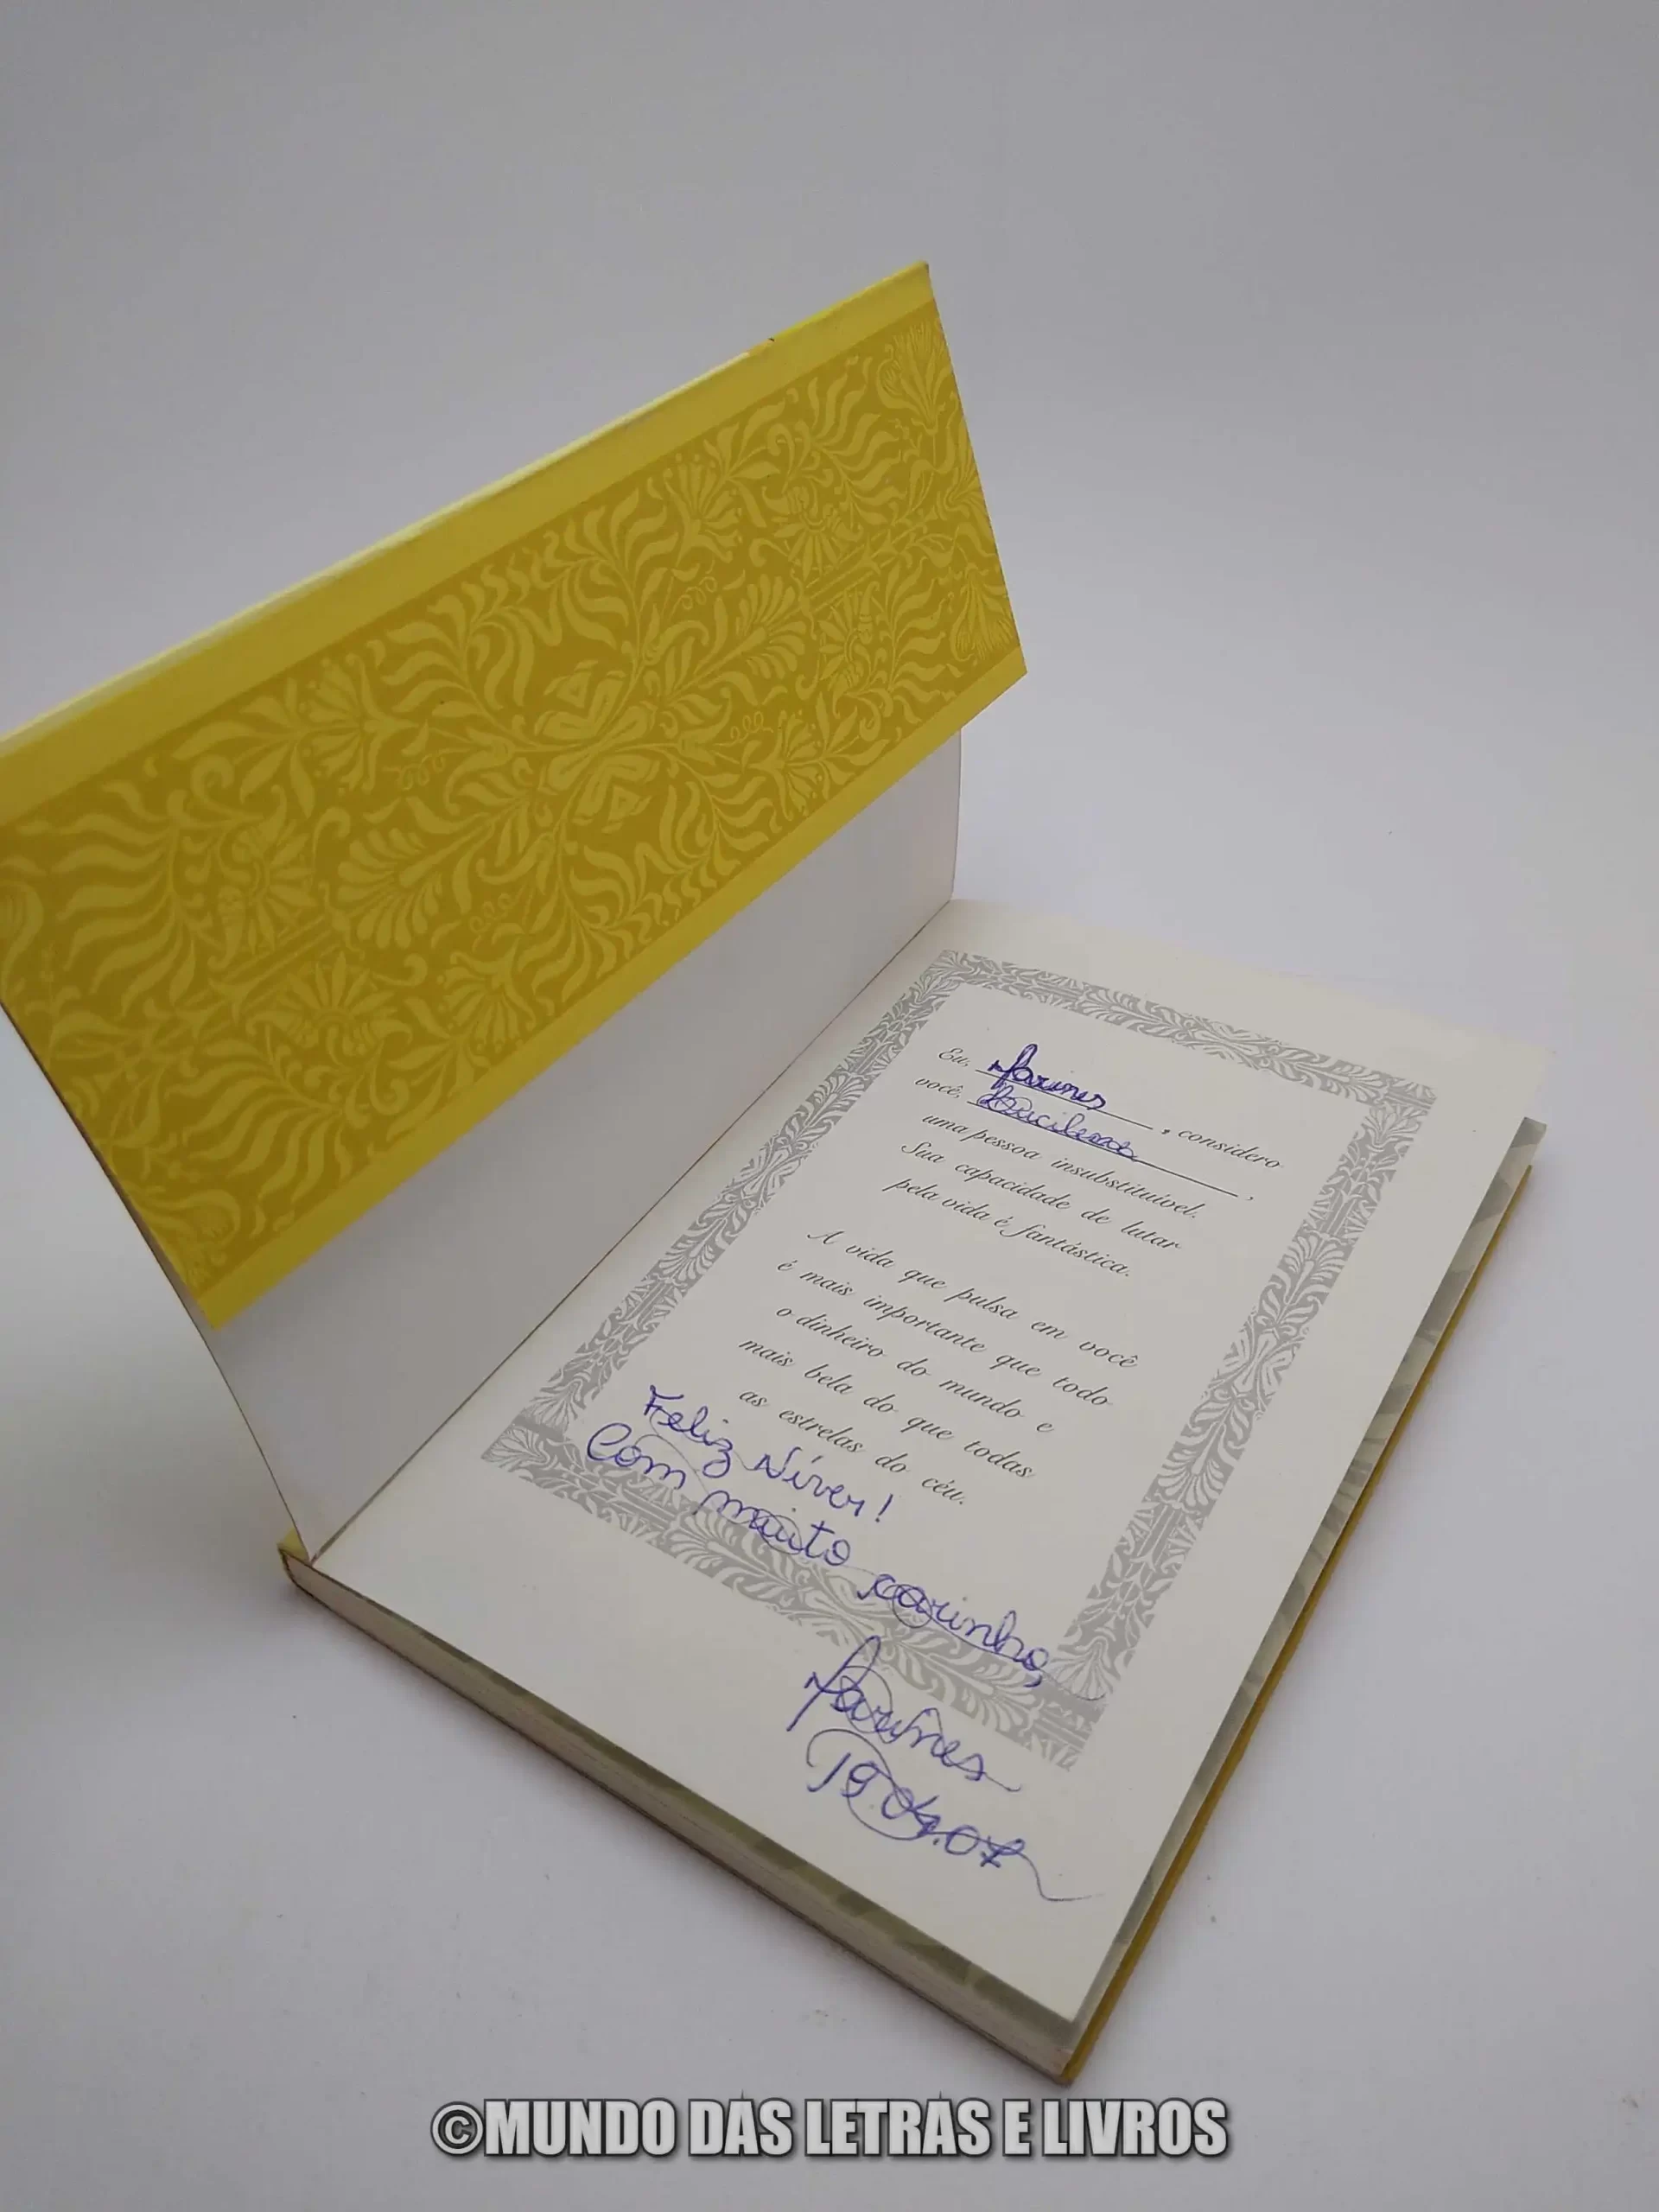 Eu, Marines, considero
você, Lucilena,
uma pessoa insubstituível.
Sua capacidade de lutar
pela vida é fantástica.
A vida que pulsa em você
é mais importante que todo
o dinheiro do mundo e
mais bela do que todas
as estrelas do céu.
Feliz Níver!
Com muito carinho,
Marines
19.04.07
©MUNDO DAS LETRAS E LIVROS